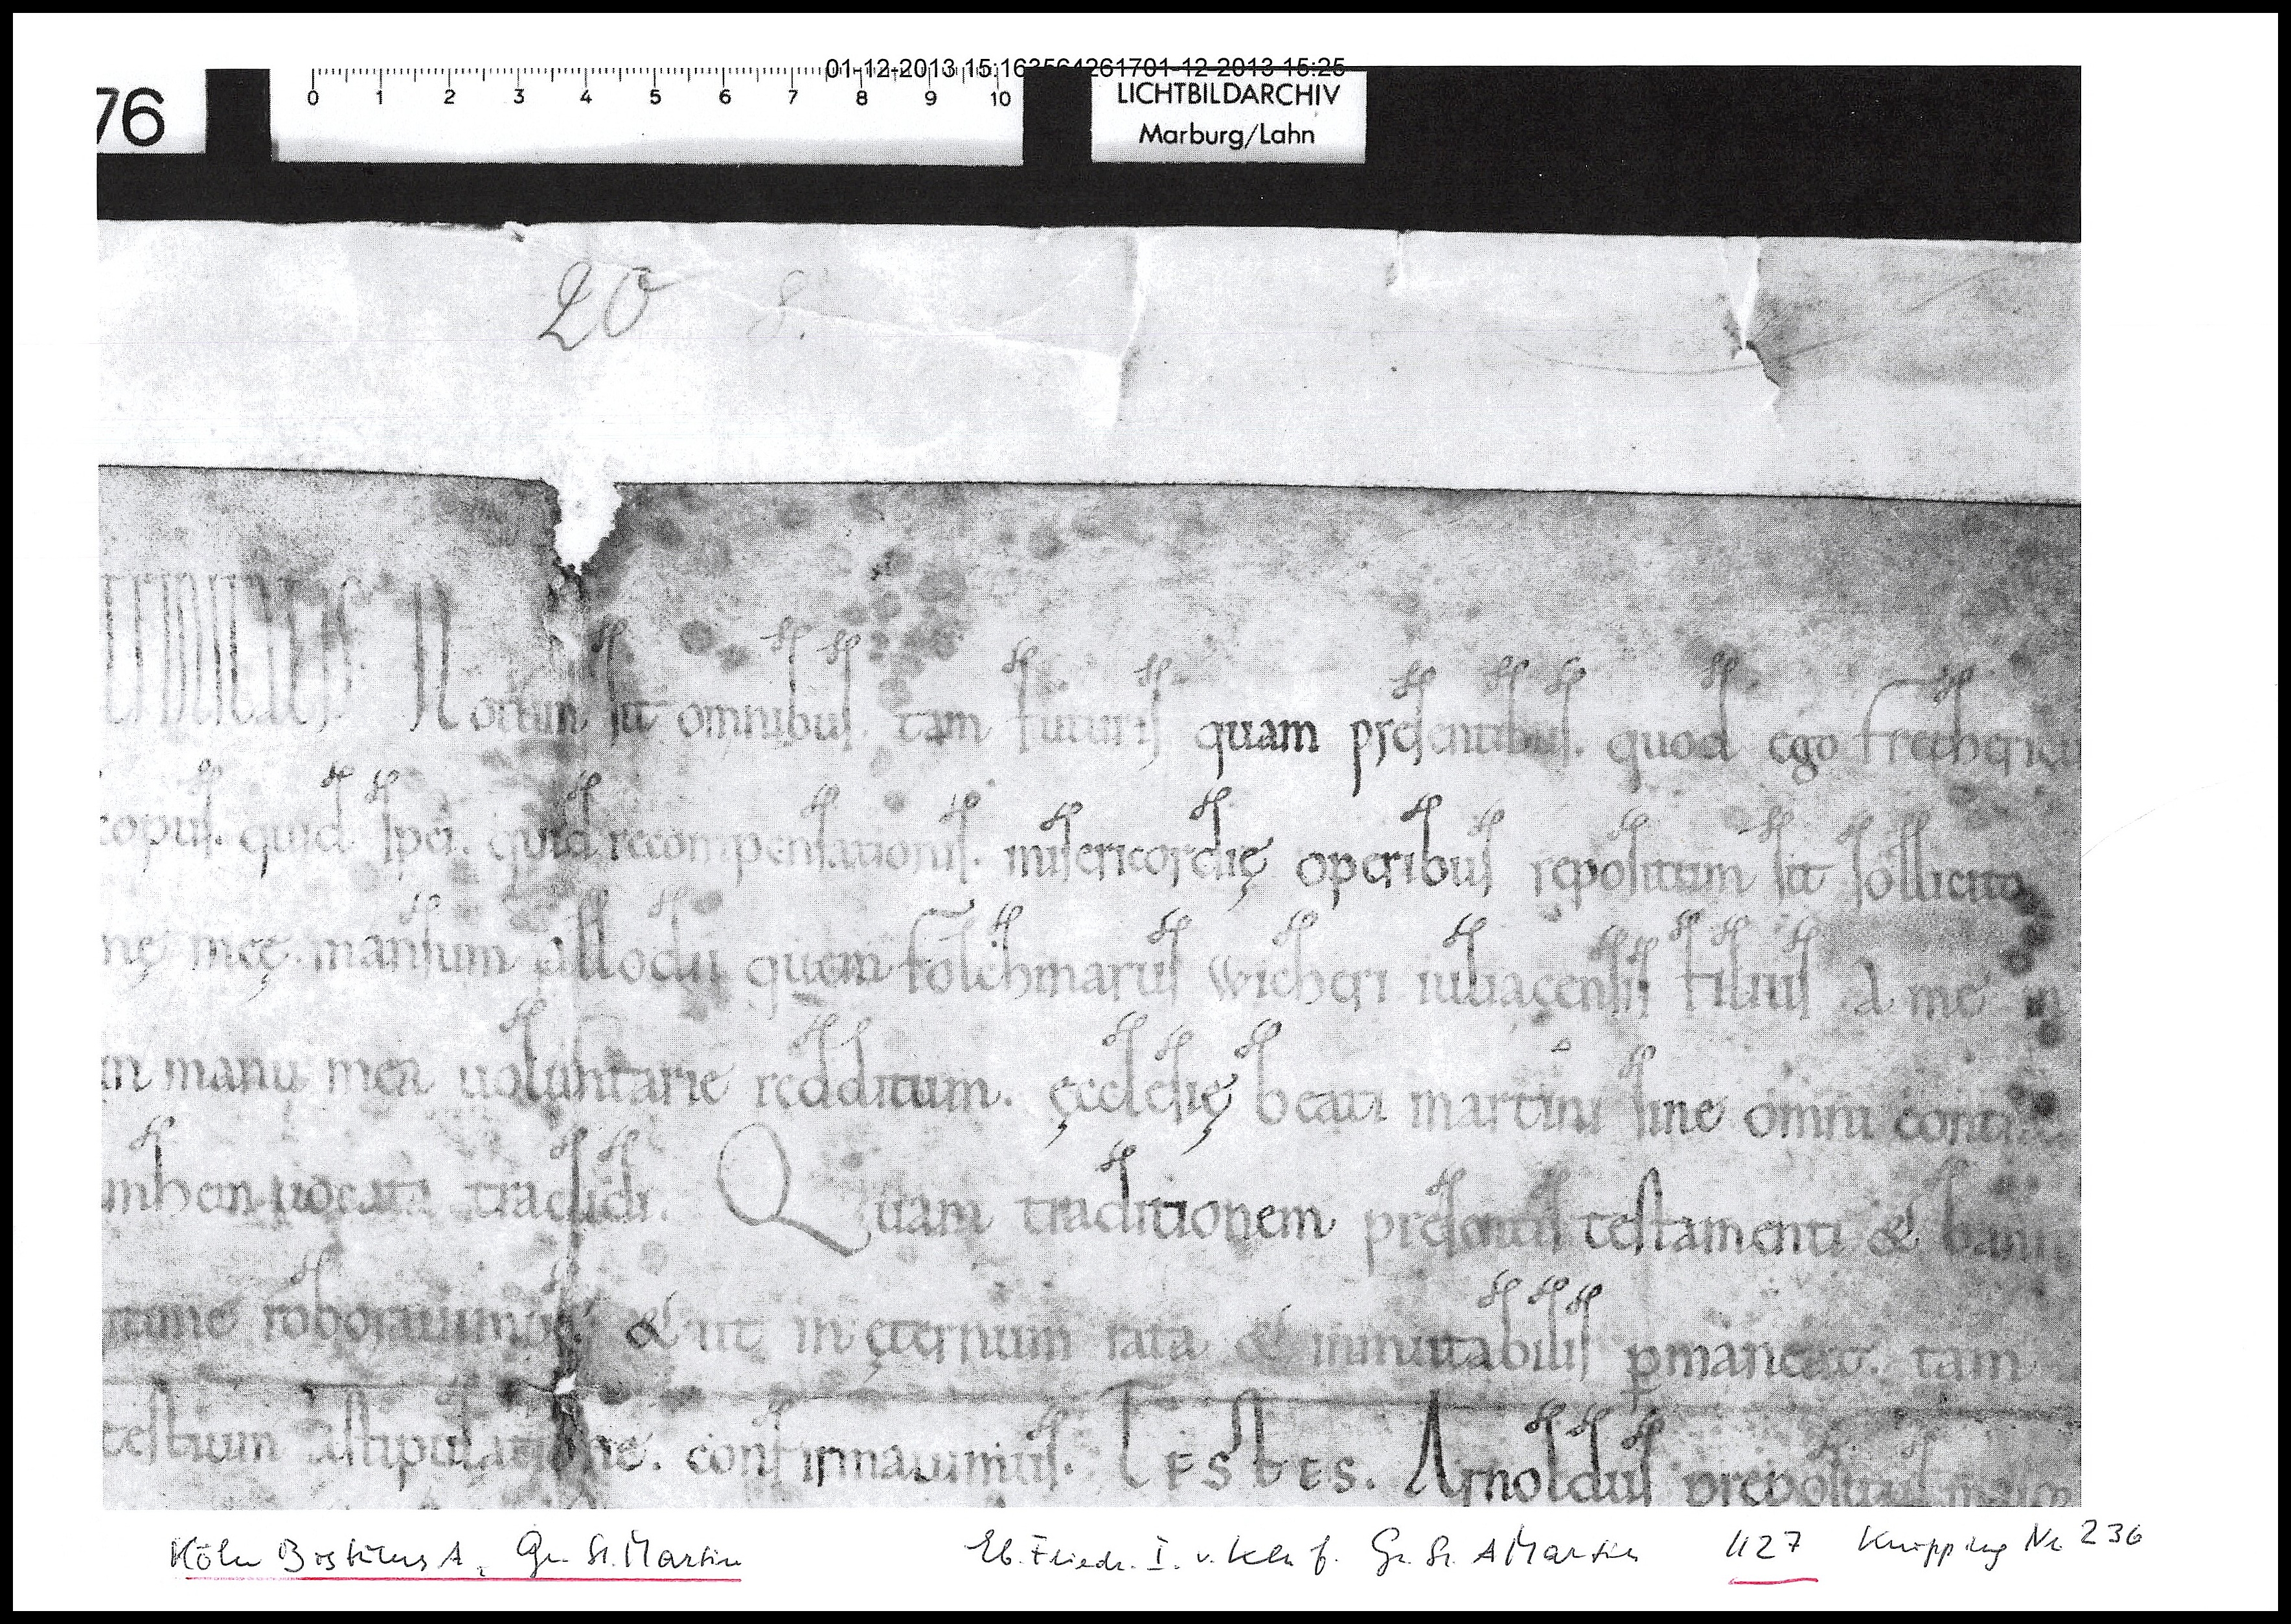 01-12-2013 15:163564261701-12-2013 15:25
76
0 1 2 3 4 5 6 7 8 9 10
LICHTBILDARCHIV
Marburg/Lahn
20 8.
Notum sit omnibus. tam futuris quam pręsentibus. quod ego frethericus
copus. quid spei. quid recompensationis. misericordię operibus repositum sit sollicito
nę meę. mansum allodii quem folchmarus wicheri iuliacensis filius a me in
in manu mea uoluntarie redditum. ęcclesię beati martini sine omni
uocati tradidi. Quam traditionem presentis testamenti & banni
roborauimus. & ut in ęternum rata & inmutabilis pmaneat. tam
testium astipulatione. confirmauimus. Testes. Arnoldus prepositus maior
Köln Bistums A, Gr. St. Martin
Eb. Friedr. I. v. Köln f. Gr. St. Martin 1127 Knipping Nr 236